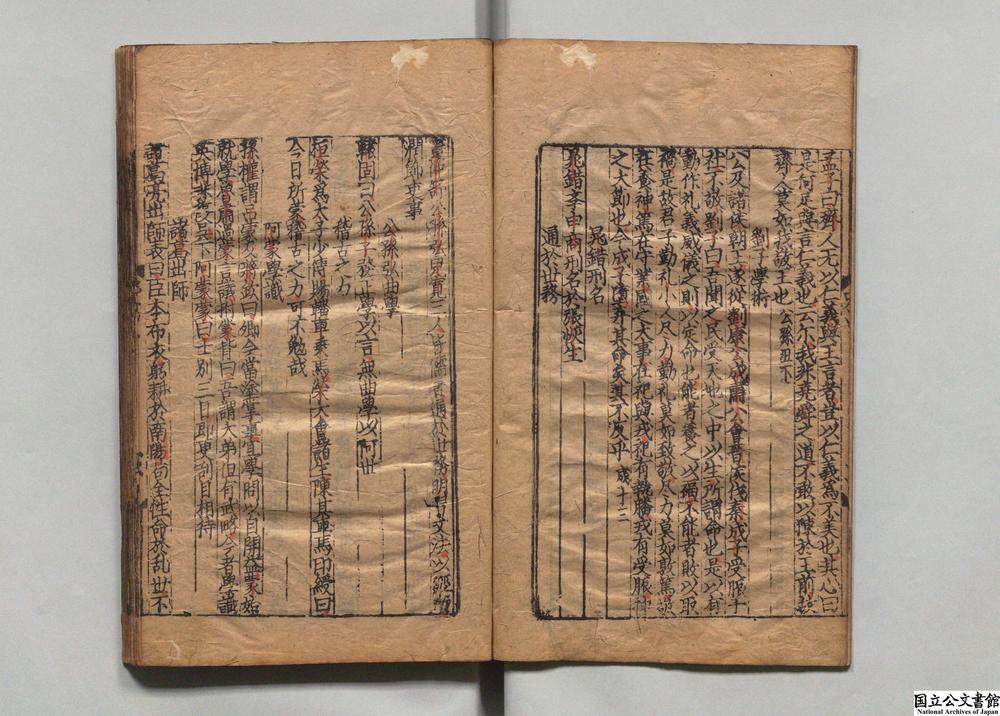 孟子曰齊人无以仁義與王言者豈以仁義為不美也其心曰
是何足與言仁義也云尔我非堯舜之道不敢以陳於王前故
齊人莫如我敬王也 公孫丑下
劉子學術
公及諸侯朝王遂從劉康公成肅公會晋侯伐秦成子受脤于
社不敬劉子曰吾聞之民受天地之中以生所謂命也是以有
動作礼義威儀之則以定命也能者養之以福不能者敗以取
禍是故君子勤礼小人尽力勤礼莫如致敬尽力莫如敦篤敬
在養神篤在守業國之大事在祀與戎祀有執膰戎有受脤神
之大節也今成子惰弃其命矣其不反乎 成十三
晁錯刑名
晁錯孝申商刑名於張恢生
通於世務
通於世務明習文法以經
潤飾吏事
公孫弘曲學
轅固曰公孫子務正學以言無曲學以阿世
稽古之力
桓榮為太子少傅賜輜車乘馬榮大會諸生陳其車馬印綬曰
今日所蒙稽古之力可不勉哉
阿蒙學識
孫權謂呂蒙及蔣欽曰卿今當塗掌事宜學問以自開益蒙始
就學魯肅過蒙言議
曰吾謂大弟但有武略今者學識
英博非復吳下阿蒙蒙曰士別三日即更刮目相待
諸葛出師
諸葛亮出師表曰臣本布衣躬耕於南陽苟全性命於乱世不
国立公文書館
National Archives of Japan